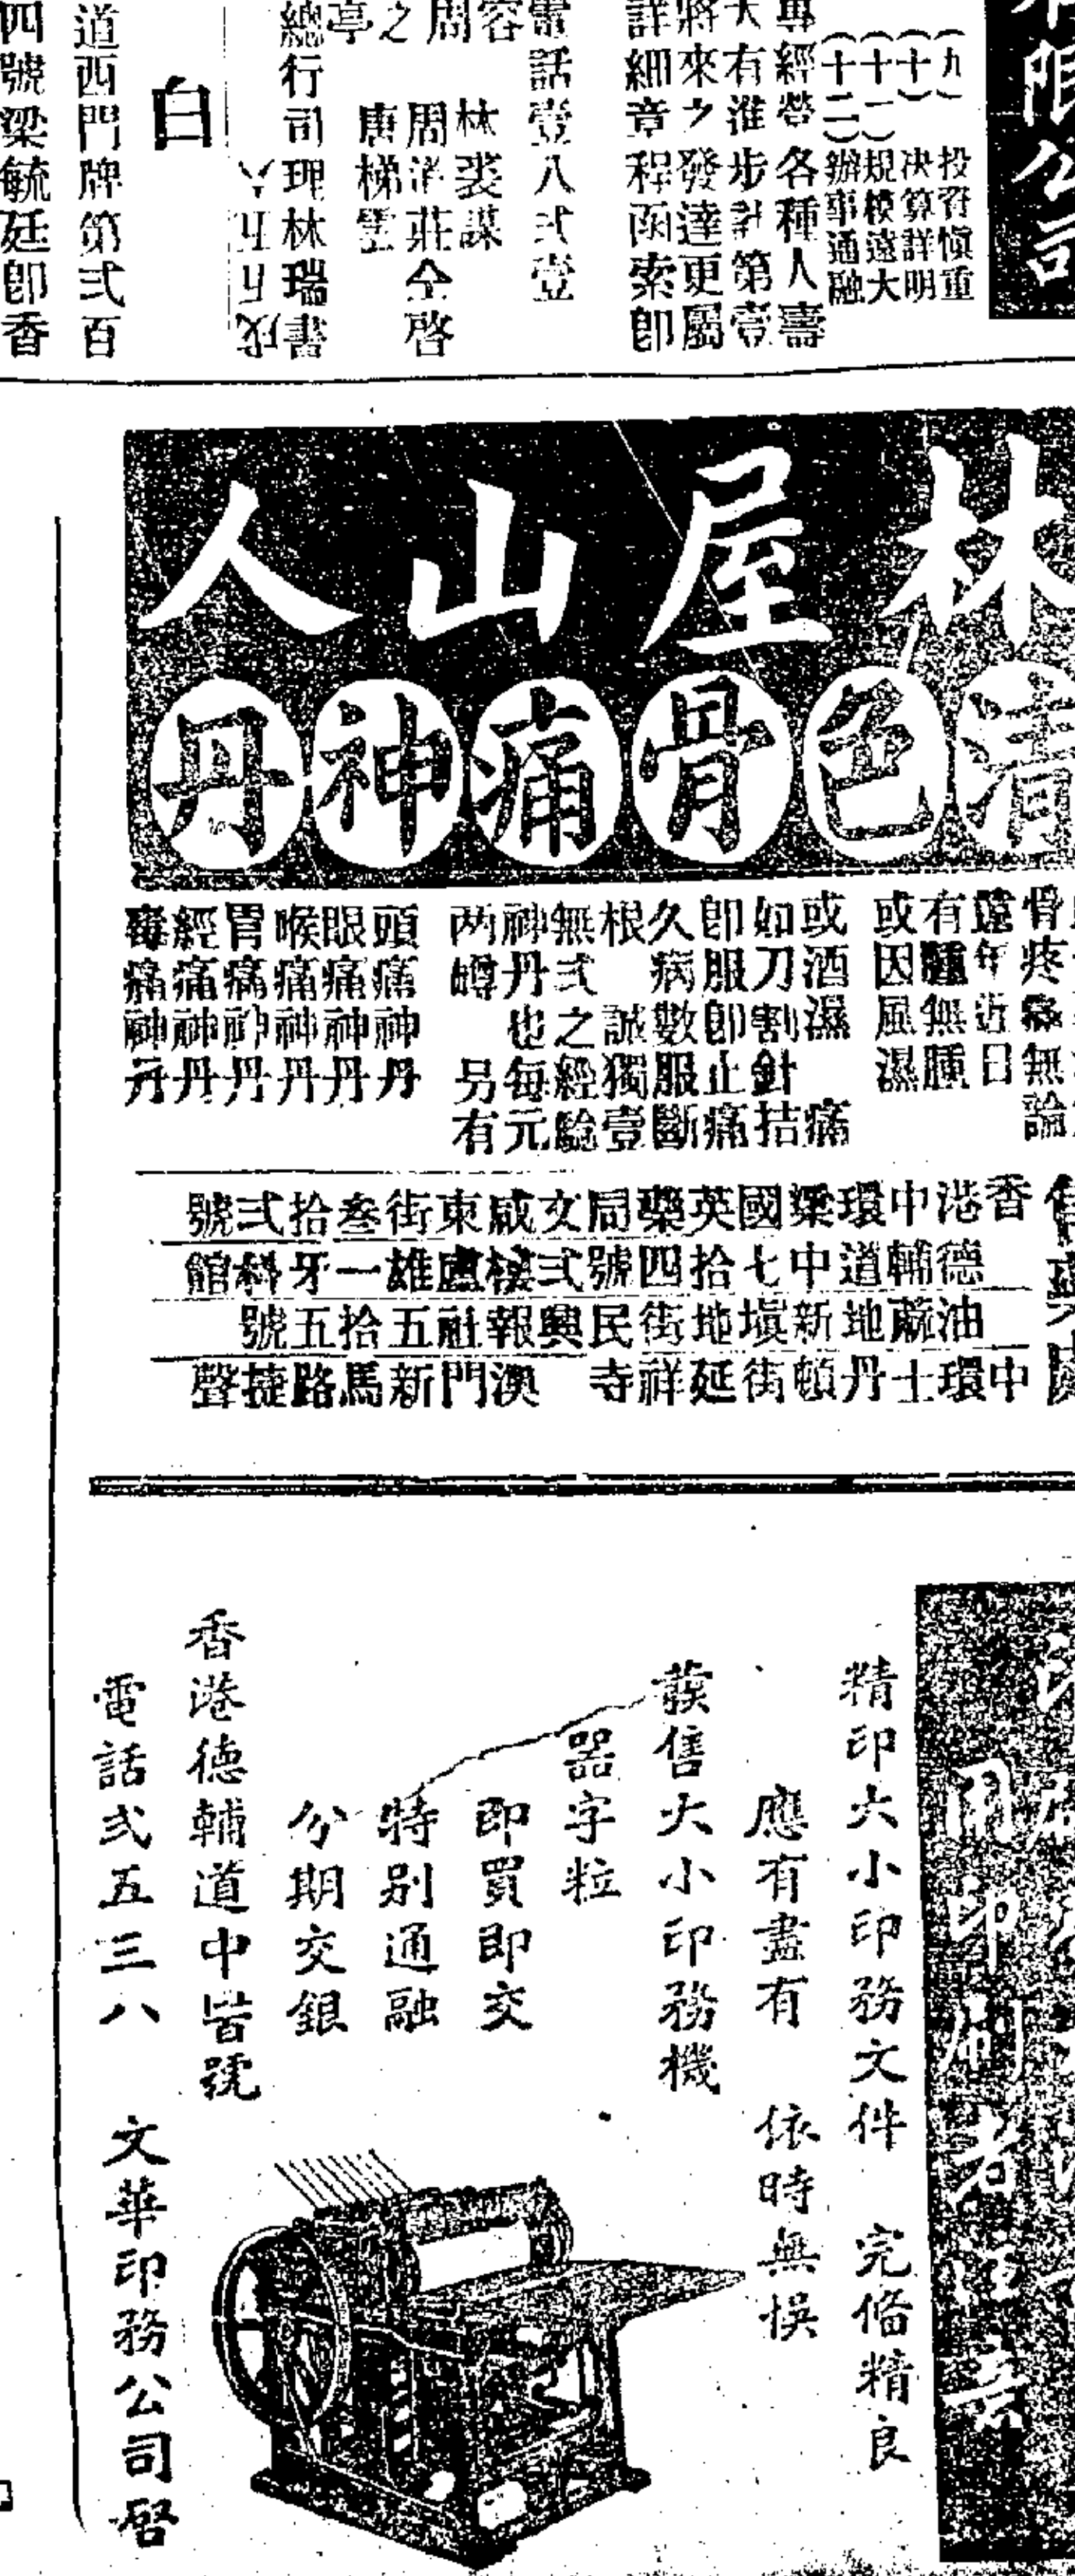 限公司
(九) 投資慎重
(十) 决算詳明
(十一) 規模遠大
(十二) 辦事通融
專經營各種人壽
大有進步計第壹
將來之發達更屬
詳細章程函索即
電話壹八弍壹
容 林裘謀
周 周
之 莊仝啓
亭 唐梯雲
總行司理林瑞書
白
道西門牌第弍百
四號梁毓廷即香
林屋山人
清色骨痛神丹
骨疼 無論
遠年近日
有腫無腫
或因風濕
或酒濕 痛
如刀割針拮
即服即止痛
久病數服斷
根 誠獨壹
無弍之經驗
神丹也每元
两罇 另有
頭痛神丹
眼痛神丹
喉痛神丹
胃痛神丹
經痛神丹
毒痛神丹
香港中環梁國英藥局文咸東街叁拾弍號
德輔道中七拾四號弍樓盧雄一牙科館
油蔴地新填地街民興報社五拾五號
中環士丹頓街延祥寺 澳門新馬路捷聲
精印大小印務文件 完偹精良
應有盡有 依時無悞
發售大小印務機
器字粒
即買即交
特别通融
分期交銀
香港德輔道中 號
電話弍五三八 文華印務公司啓
用印刷者